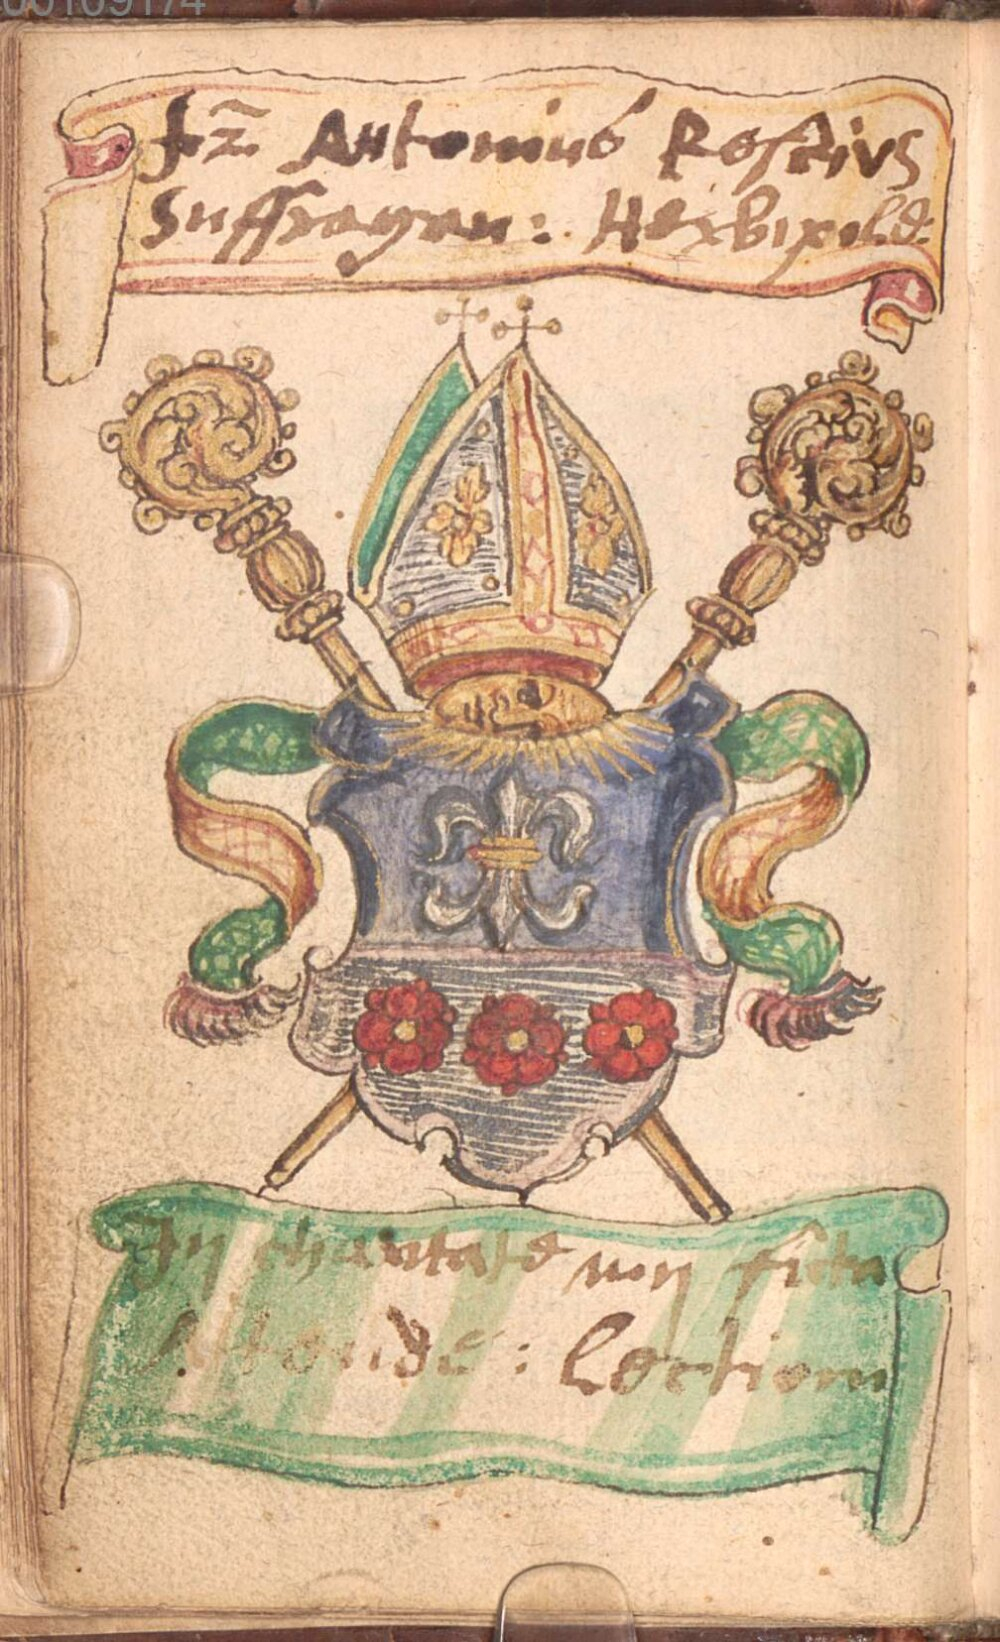 00109174
Fr̃ Antonius Rescius
Suffragan: Herbipolẽ:
In charitate non ficta
Attende: Lectioni